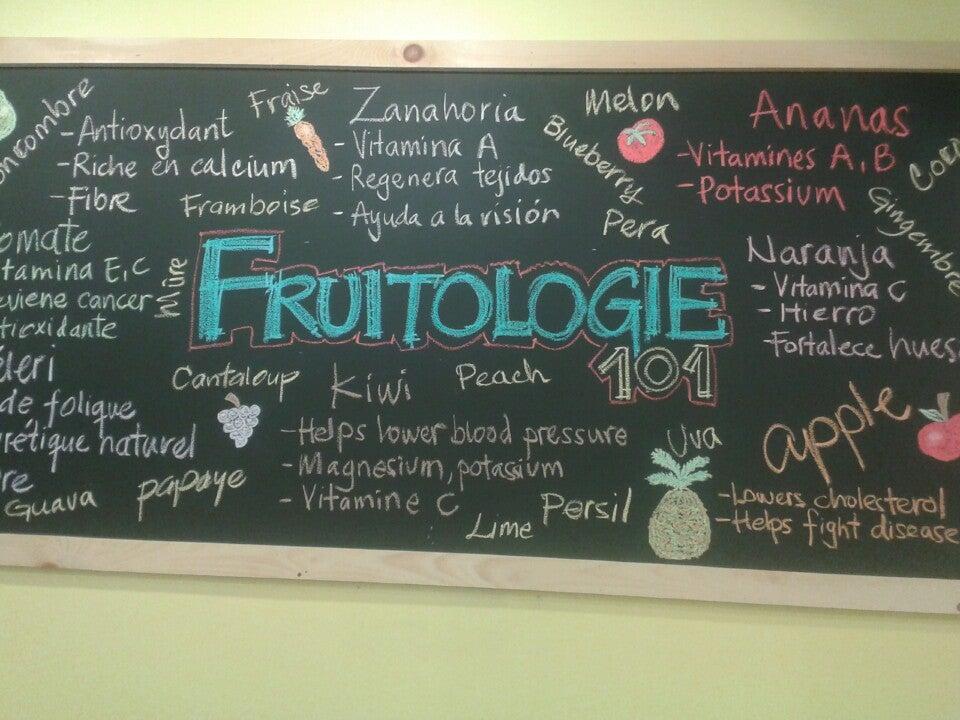 Fraise
- Antioxydant
- Riche en calcium
- Fibre
Framboise
Zanahoria
- Vitamina A
- Regenera tejidos
- Ayuda a la visión
Melon
Blueberry
Pera
Ananas
- Vitamines A, B
- Potassium
Gingembre
Mûre
FRUITOLOGIE
101
Naranja
- Vitamina C
- Hierro
- Fortalece
E, C
cancer
de folique
naturel
Guava
papaye
Cantaloup
Kiwi
- Helps lower blood pressure
- Magnesium, potassium
- Vitamine C
Peach
Lime
Persil
Uva
apple
- Lowers cholesterol
- Helps fight disease